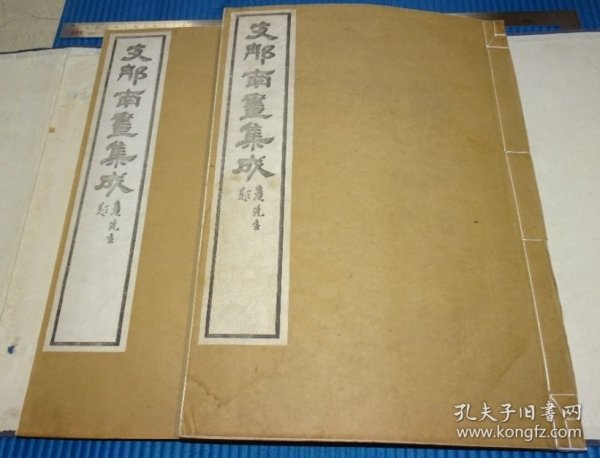 支那南畫集成
題
支那南畫集成
題
孔夫子旧书网
www.kongfz.com